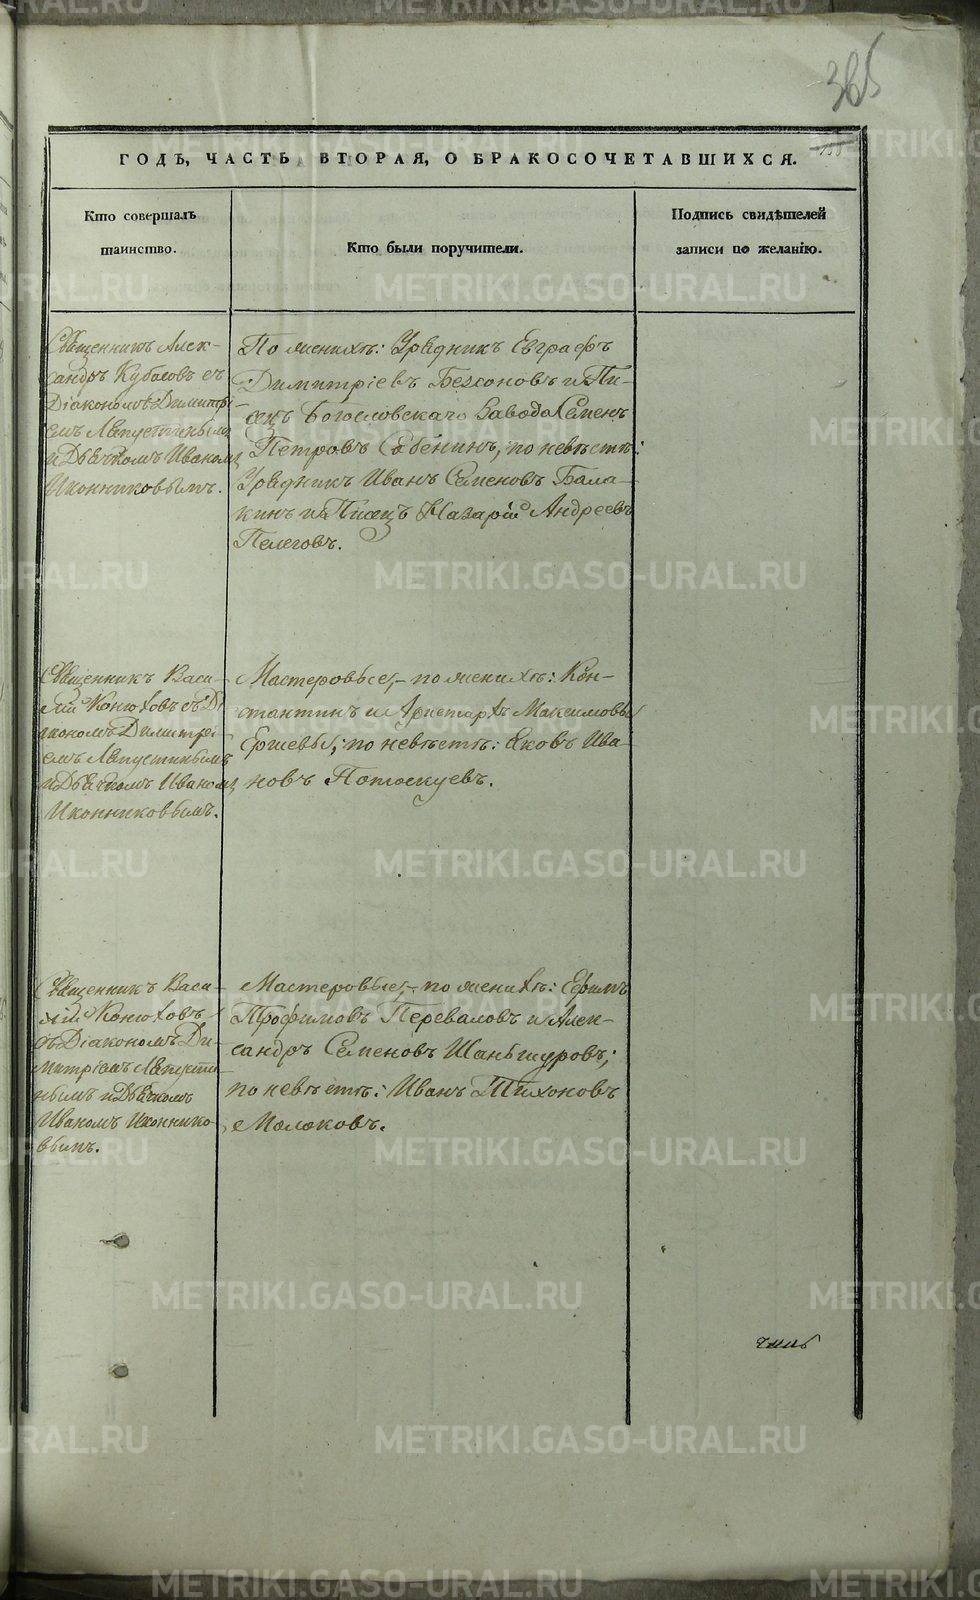 365
ГОДЪ, ЧАСТЬ ВТОРАЯ, О БРАКОСОЧЕТАВШИХСЯ.
Кто совершалъ
таинство.
Кто были поручители.
Подпись свидѣтелей
записи по желанію.
Священникъ Алек-
сандръ Кубасовъ съ
Діакономъ Димитрі-
емъ Августинымъ
и Дьячкомъ Иваномъ
Иконниковымъ.
По женихѣ: Урядникъ Евграфъ
Димитріевъ Безсоновъ и Пи-
сецъ Богословскаго Завода Семенъ
Петровъ Собенинъ; по невѣстѣ:
Урядникъ Иванъ Семеновъ Бала-
кинъ и Писецъ Назарій Андреевъ
Пелеговъ.
Священникъ Васи-
лій Конюховъ съ Ді-
акономъ Димитрі-
емъ Августинымъ
и Дьячкомъ Иваномъ
Иконниковымъ.
Мастеровые,- по женихѣ: Кон-
стантинъ и Аристархъ Максимовы
Ершевы; по невѣстѣ: Яковъ Ива-
новъ Потоскуевъ.
Священникъ Васи-
лій Конюховъ
съ Діакономъ Ди-
митріемъ Августи-
нымъ и Дьячкомъ
Иваномъ Иконнико-
вымъ.
Мастеровые,- по женихѣ: Ефимъ
Трофимовъ Переваловъ и Алек-
сандръ Семеновъ Шаньшуровъ;
по невѣстѣ: Иванъ Тихоновъ
Молоковъ.
METRIKI.GASO-URAL.RU